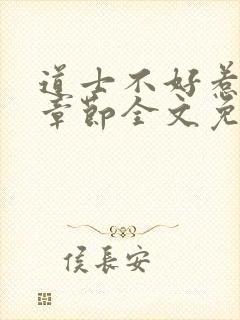 道士不好惹
章节全文免
侯长安